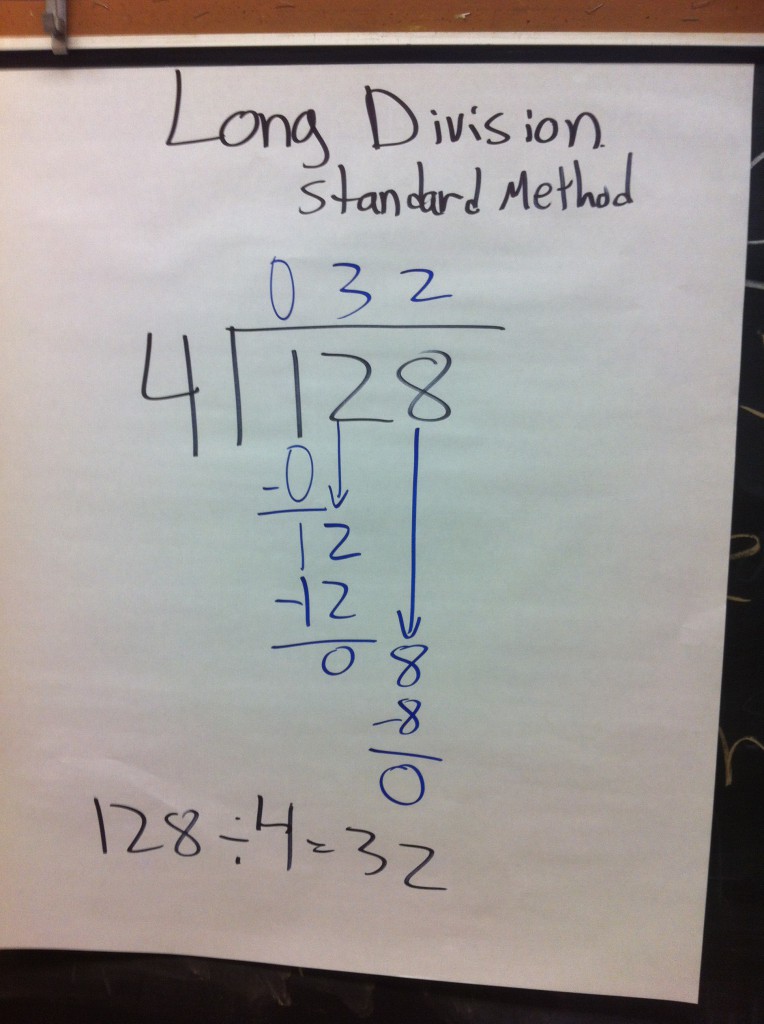 Long Division
Standard Method
032
4 128
-0
12
-12
0 8
-8
0
128÷4=32